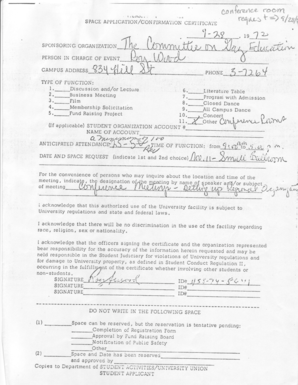 conference room
SPACE APPLICATION/CONFIRMATION CERTIFICATE
7-28 1972
SPONSORING ORGANIZATION The Committee on Gay Education
PERSON IN CHARGE OF EVENT Wood
CAMPUS ADDRESS 834 Hill St PHONE 3-7264
TYPE OF FUNCTION:
1. Discussion and/or Lecture
2. Business Meeting
3. Film
4. Membership Solicitation
5. Fund Raising Project
6. Literature Table
7. Program with Admission
8. Closed Dance
9. All Campus Dance
10. Concert
X Other Conference Rooms
(If applicable) STUDENT ORGANIZATION ACCOUNT #
NAME OF ACCOUNT
ANTICIPATED ATTENDANCE TIME OF FUNCTION: from
DATE AND SPACE REQUEST (Indicate 1st and 2nd choice) Nov. 11- Small
For the convenience of persons who may inquire about the location and time of the
meeting, indicate the designation and/or subject
of meeting. Conference Meeting - Setting up
I acknowledge that this authorized use of the University facility is subject to
University regulations and state and federal laws.
I acknowledge that there will be no discrimination in the use of the facility regarding
race, religion, sex or nationality.
I acknowledge that the officers signing the certificate and the organization represented
bear responsibility for the accuracy of the information herein requested and may be
held responsible to the Student Judiciary for violations of University regulations and
for damage to University property, as defined in Student Conduct Regulation II,
occurring in the fulfillment of the certificate whether involving students or
non-students.
SIGNATURE ID#
SIGNATURE ID#
SIGNATURE ID#
DO NOT WRITE IN THE FOLLOWING SPACE
(1) Space can be reserved, but the reservation is tentative pending:
Completion of Registration Form
Approval by Fund Raising Board
Notification of Public Safety
Other
(2) Space and Date has been reserved
and approved by
Copies to Department of STUDENT ACTIVITIES/UNIVERSITY UNION
STUDENT APPLICANT